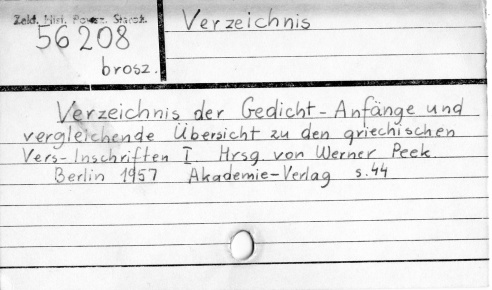 Zakł. Hist. Powsz. Staroż.
56208
brosz.
Verzeichnis
Verzeichnis der Gedicht-Anfänge und
vergleichende Übersicht zu den griechischen
Vers-Inschriften I. Hrsg. von Werner Peek.
Berlin 1957 Akademie-Verlag s.44